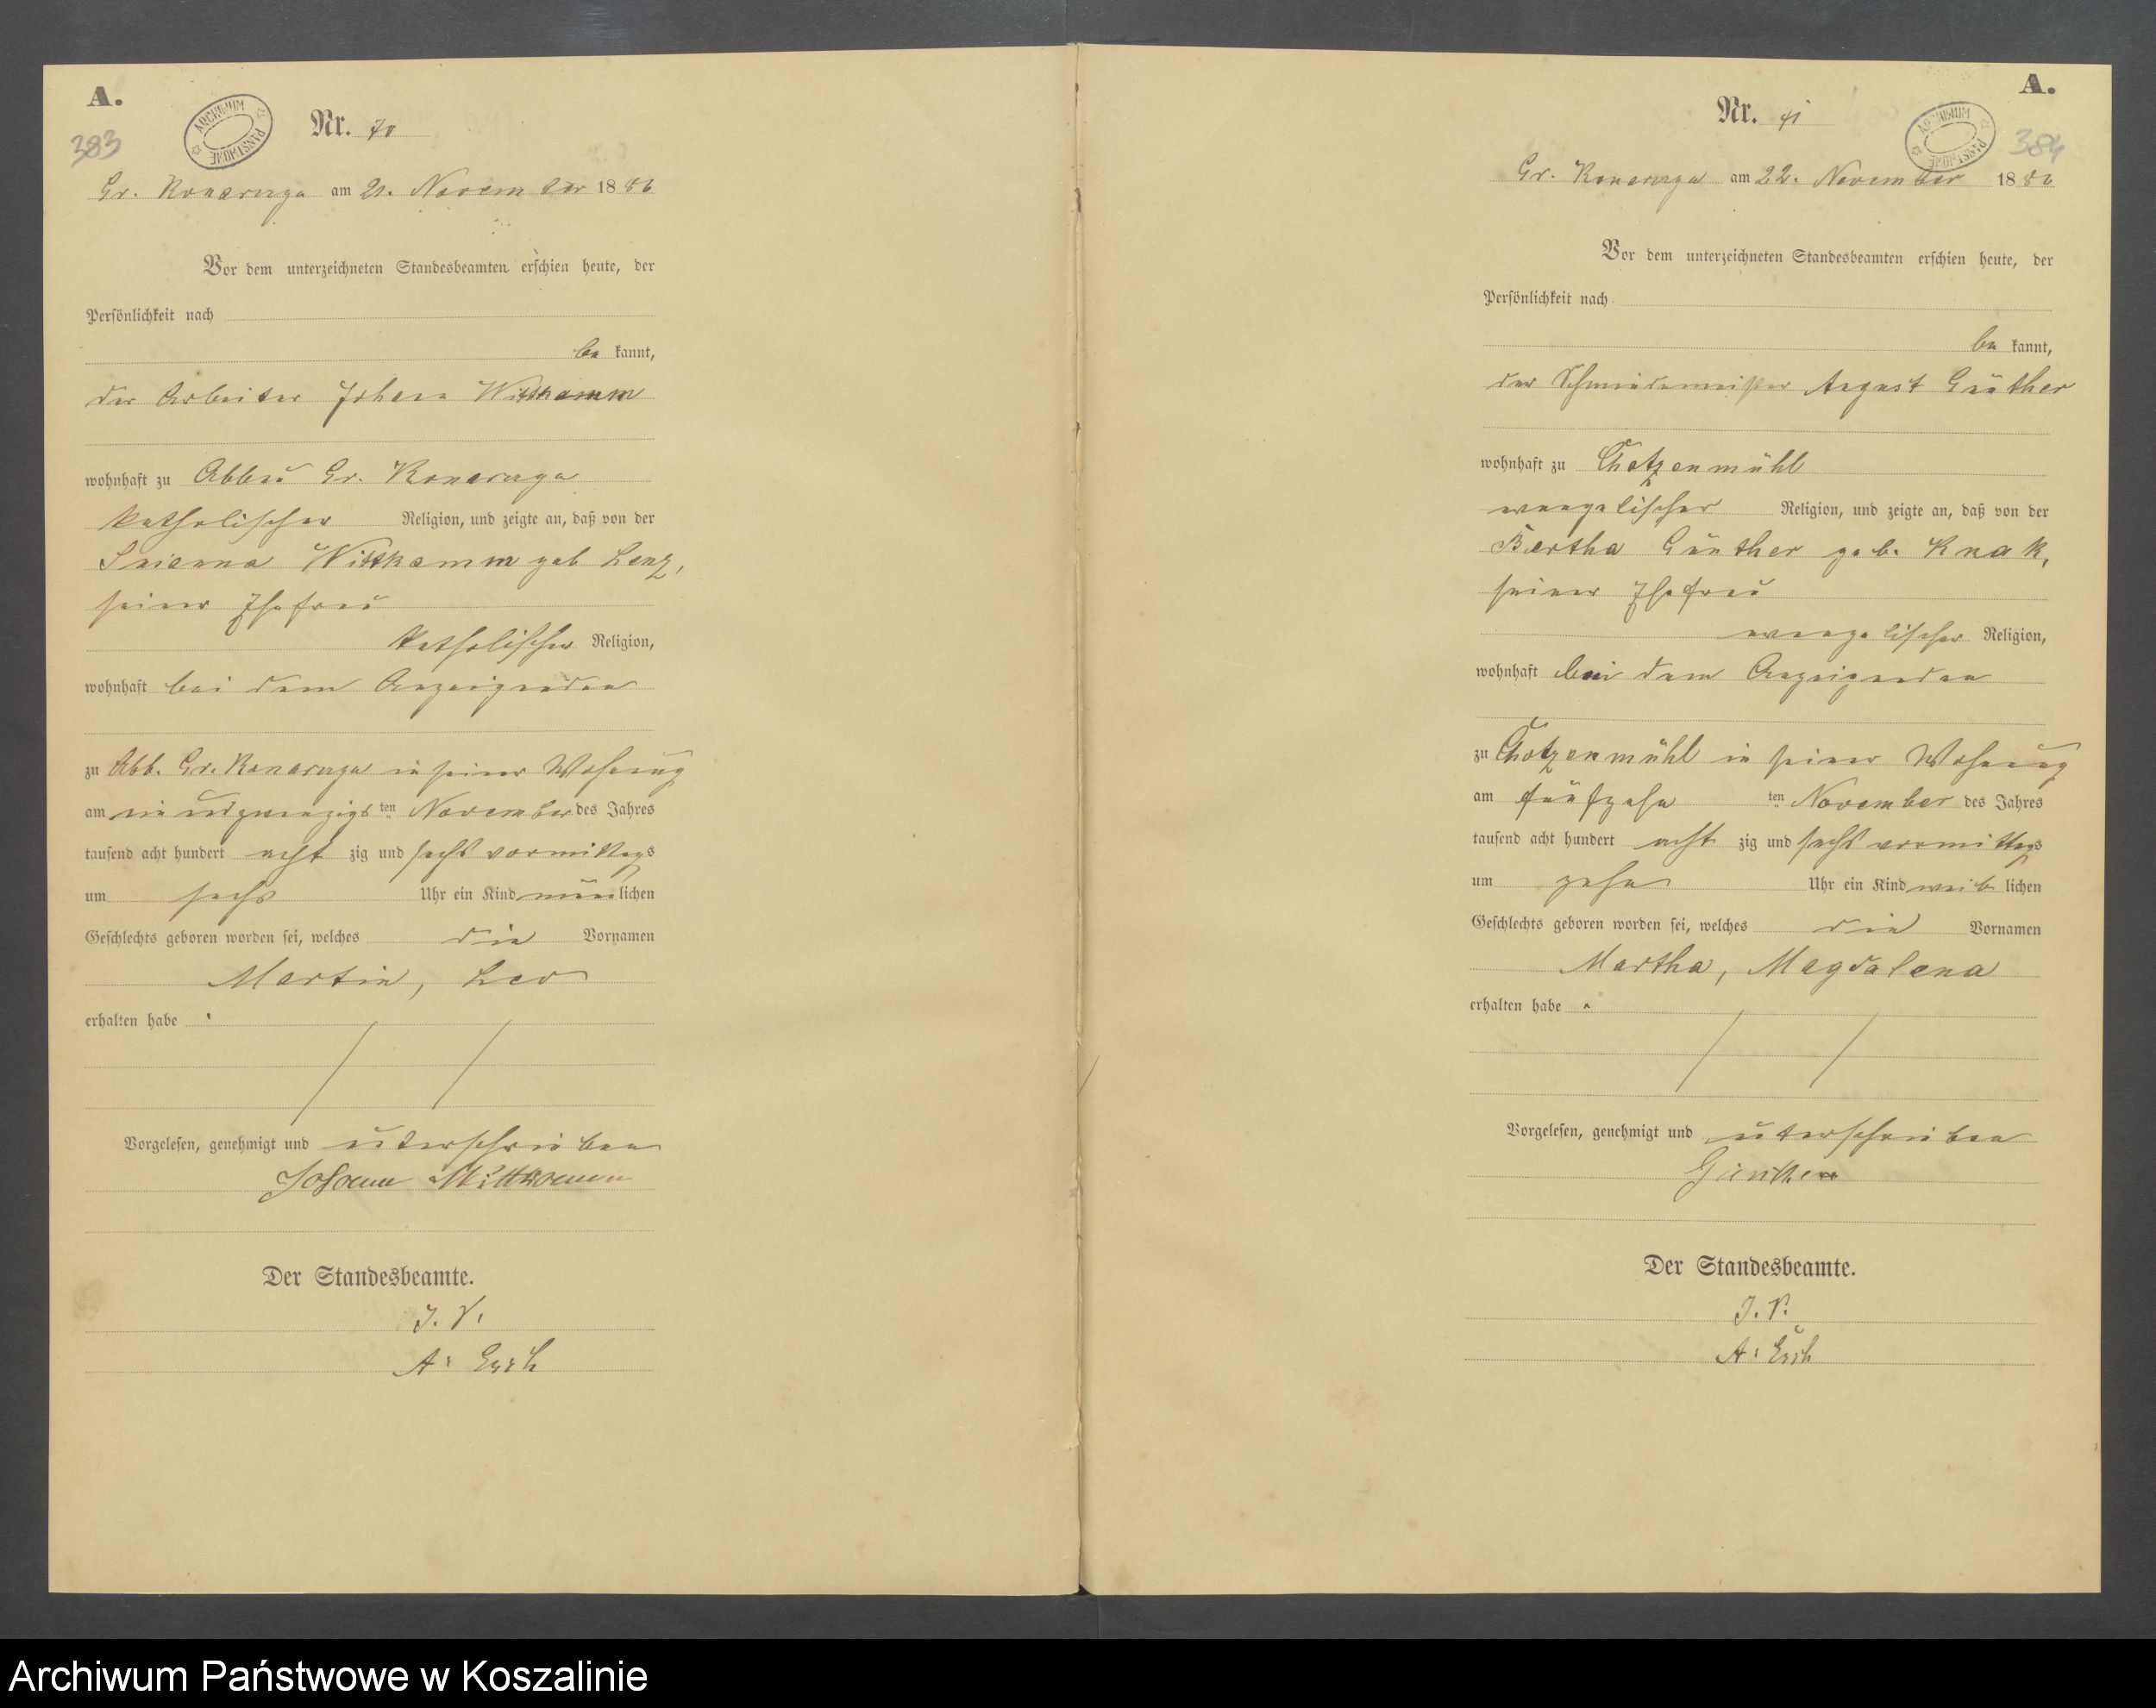 A.
383
ARCHIWUM PAŃSTWOWE
Nr. 70
Gr. Konarczyn am 21. November 1886
Vor dem unterzeichneten Standesbeamten erschien heute, der
Persönlichkeit nach
be kannt,
der Arbeiter Johann Wittkamm
wohnhaft zu Abbau Gr. Konarczyn
katholischer Religion, und zeigte an, daß von der
Wittkamm geb Lenz,
seiner Ehefrau
katholischer Religion,
wohnhaft bei dem Anzeigenden
zu Abb. Gr. Konarczyn in seiner Wohnung
am ein und zwanzigsten November des Jahres
tausend acht hundert acht zig und sechs vormittags
um sechs Uhr ein Kind männlichen
Geschlechts geboren worden sei, welches die Vornamen
Martin, Leo
erhalten habe.
Vorgelesen, genehmigt und unterschrieben
Johann Wittkamm
Der Standesbeamte.
J. V.
A.
A.
384
ARCHIWUM PAŃSTWOWE
Nr. 71
Gr. Konarczyn am 22. November 1886
Vor dem unterzeichneten Standesbeamten erschien heute, der
Persönlichkeit nach
be kannt,
der Schmiedemeister August Günther
wohnhaft zu Chotzenmühl
evangelischer Religion, und zeigte an, daß von der
Bertha Günther geb. Knak,
seiner Ehefrau
evangelischer Religion,
wohnhaft bei dem Anzeigenden
zu Chotzenmühl in seiner Wohnung
am fünfzehn ten November des Jahres
tausend acht hundert acht zig und sechs vormittags
um zehn Uhr ein Kind weib lichen
Geschlechts geboren worden sei, welches die Vornamen
Martha, Magdalena
erhalten habe.
Vorgelesen, genehmigt und unterschrieben
Günther
Der Standesbeamte.
J. V.
A.
Archiwum Państwowe w Koszalinie